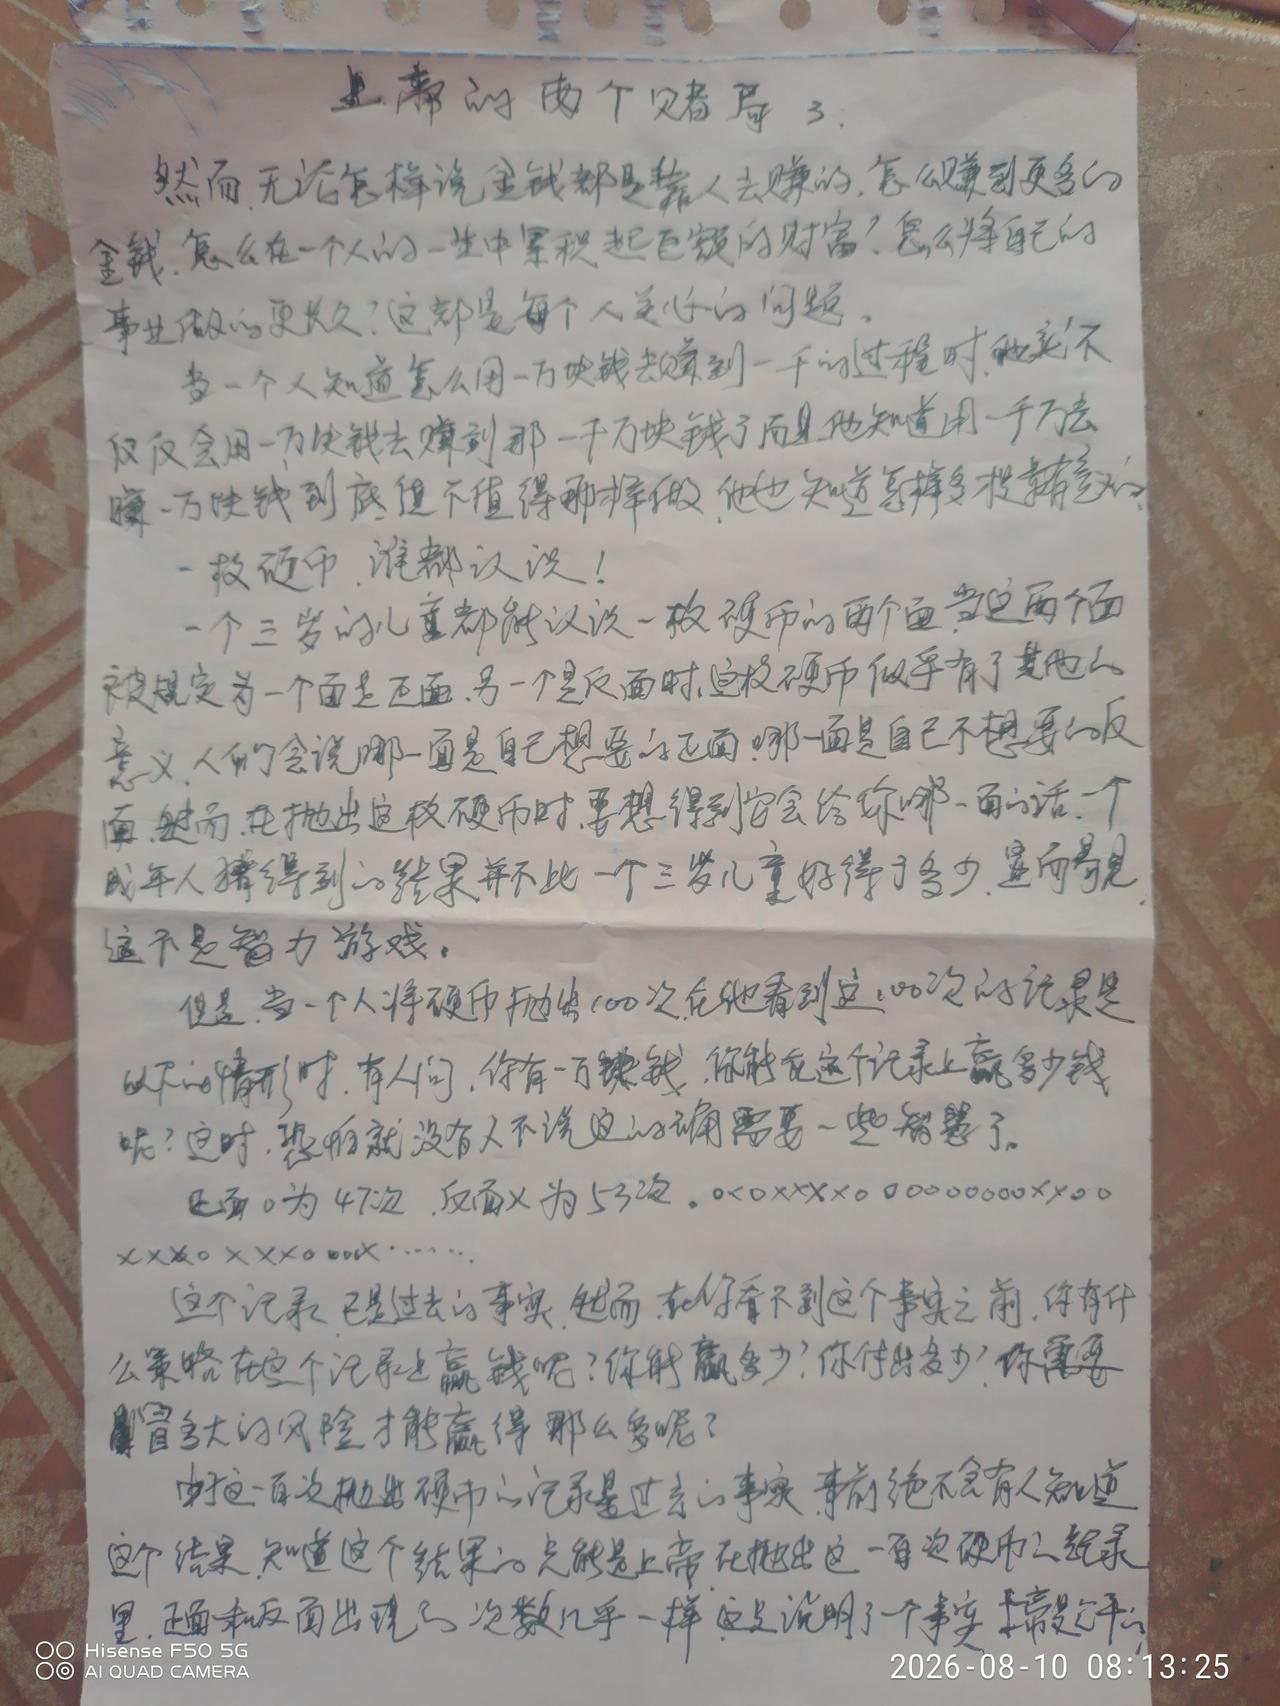 上帝的两个赌局 3.
然而,无论怎样说金钱都是靠人去赚的,怎么赚到更多的
金钱,怎么在一个人的一生中累积起巨额的财富?怎么将自己的
事业做的更长久?这都是每个人关心的问题。
当一个人知道怎么用一万块钱去赚到一千的过程时,他就不
仅仅会用一万块钱去赚到那一千万块钱了而是他知道用一千万去
赚一万块钱到底值不值得那样做,他也知道怎样多投靠有意义的,
一枚硬币,谁都认识!
一个三岁的儿童都能认识一枚硬币的两个面,当这两个面
被规定为一个面是正面,另一个是反面时,这枚硬币似乎有了其他的
意义,人们会说哪一面是自己想要的正面,哪一面是自己不想要的反
面,然而,在抛出这枚硬币时,要想得到它会给你哪一面的话,一个
成年人猜得到的结果并不比一个三岁儿童好得了多少,显而易见,
这不是智力游戏。
但是,当一个人将硬币抛出100次,在他看到这100次的记录是
以下的情形时,有人问,你有一万块钱,你能在这个记录上赢多少钱
呢?这时,恐怕就没有人不说这的确需要一些智慧了。
正面o为47次,反面x为53次。oxoxxxxoooooooooxxoo
xxxoxxxoooox······
这个记录,已是过去的事实,然而,在你看不到这个事实之前,你有什
么策略在这个记录上赢钱呢?你能赢多少?你付出多少?你需要
冒多大的风险才能赢得那么多呢?
由于这一百次抛出硬币的记录是过去的事实,事前绝不会有人知道
这个结果,知道这个结果的只能是上帝,在抛出这一百次硬币之记录
里,正面和反面出现的次数几乎一样,这只说明了一个事实,上帝是公平的,
Hisense F50 5G
AI QUAD CAMERA
2026-08-10 08:13:25